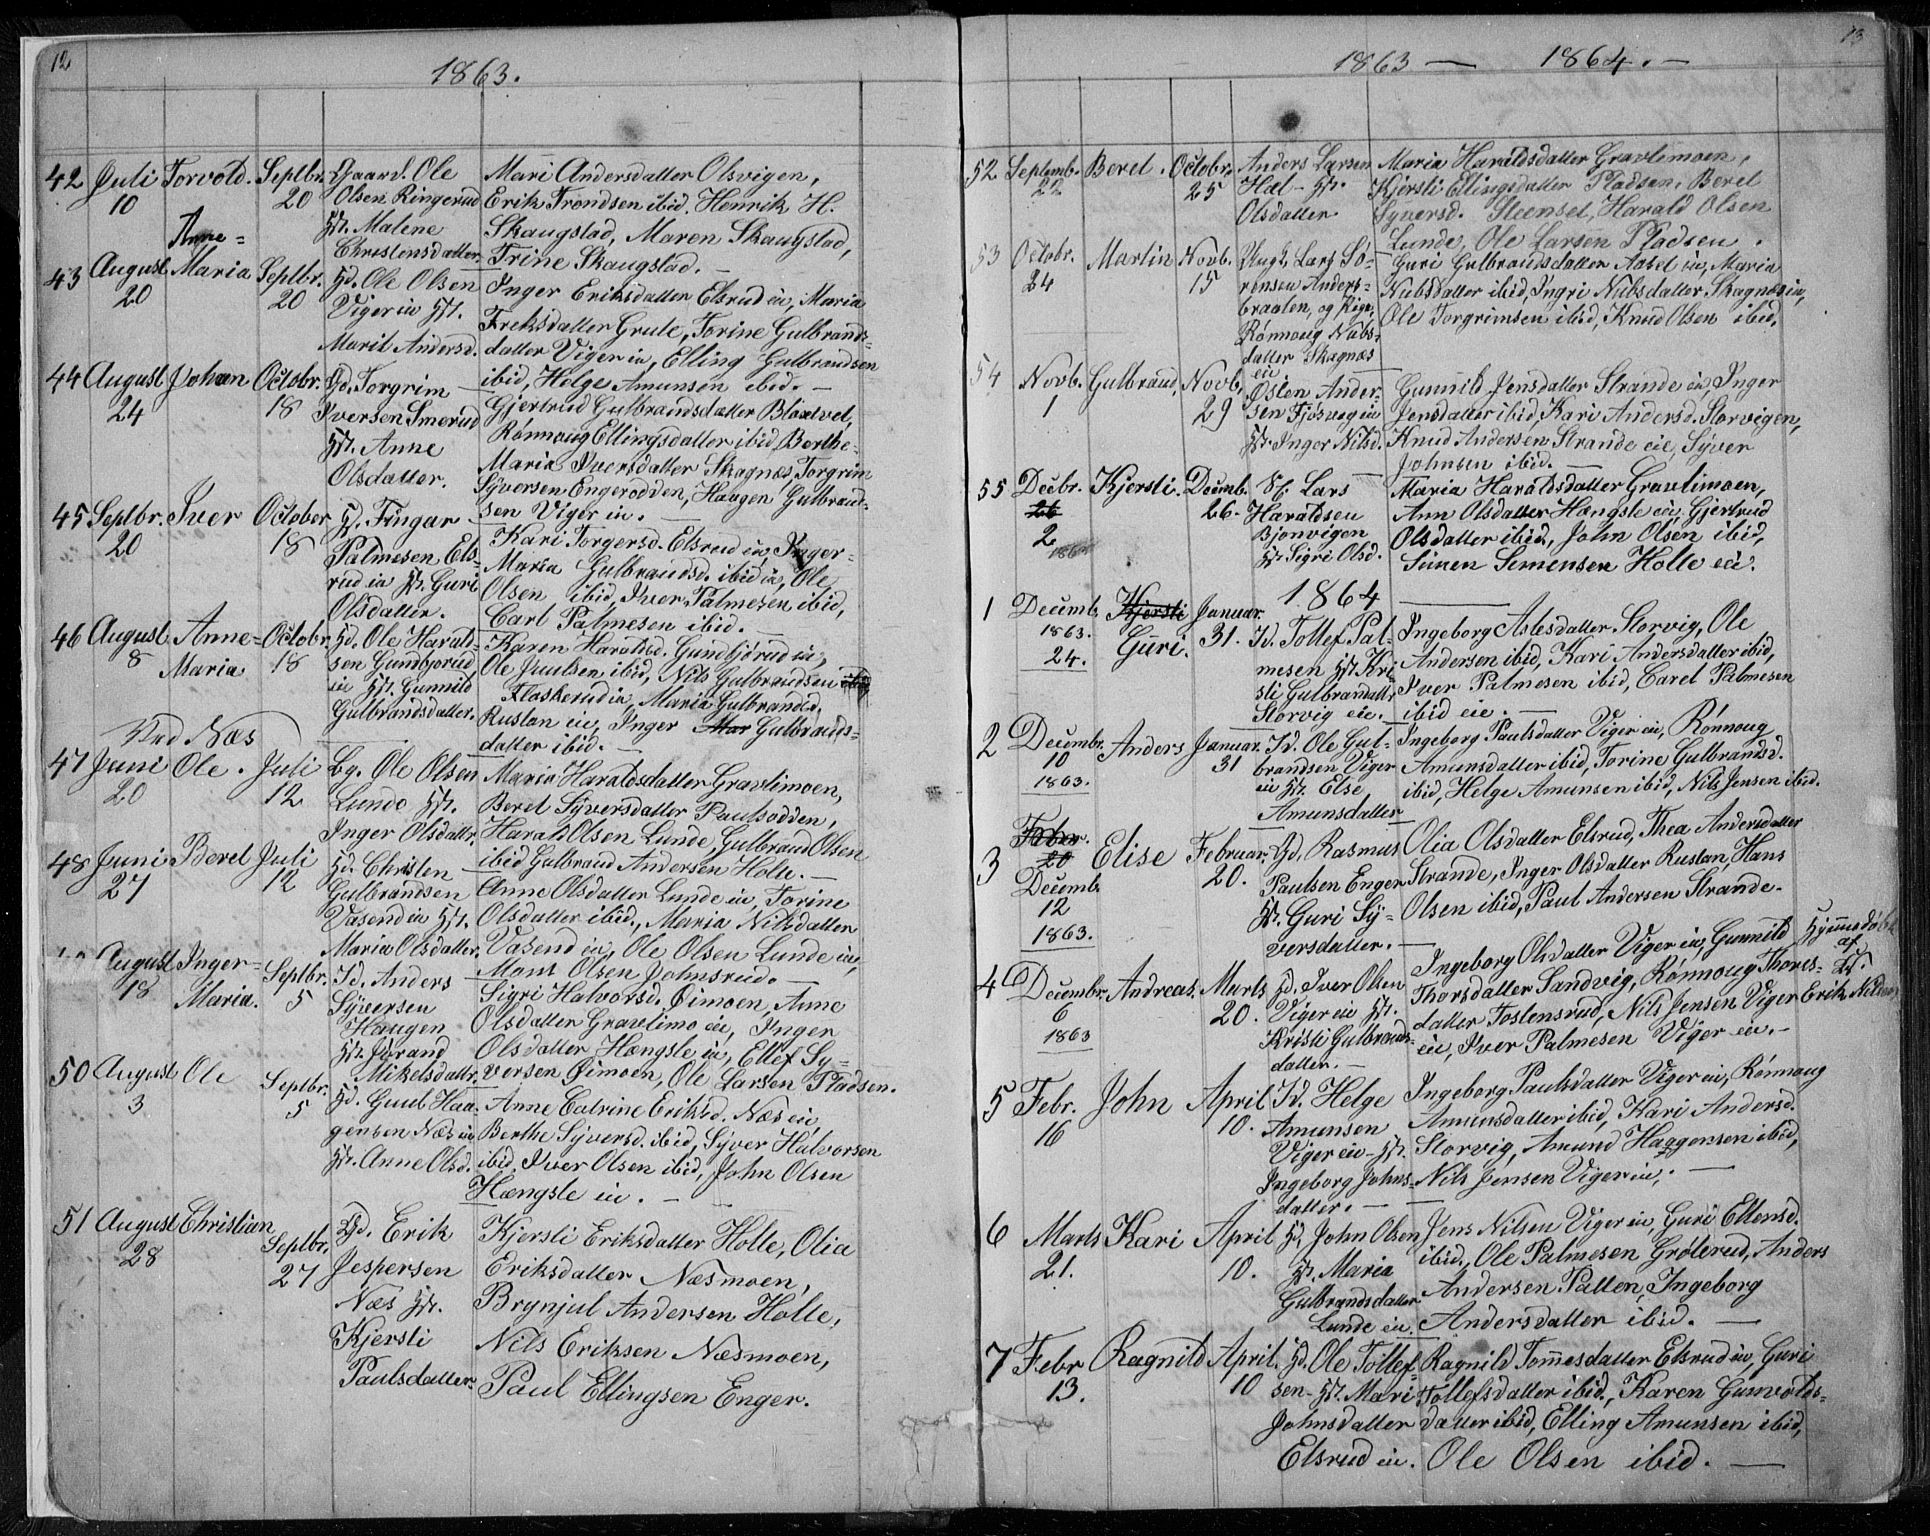 12
1863.
42 Juli 10 Torvold. Septbr. 20
Gaard. Ole
Olsen Ringerud
Hst. Malene
Christensdatter.
Mari Andersdatter Olsvigen,
Erik Trondsen ibid. Henrik H.
Skaugstad, Maren Skaugstad,
Trine Skaugstad. —
43 August 20 Anne=
Maria Septbr. 20
Gd. Ole Olsen
Viger eie Hst.
Marit Andersd.
Inger Eriksdatter Elsrud eie, Maria
Freksdatter Grute, Torine Gulbrands=
datter Viger eie, Elling Gulbrandsen
ibid, Helge Amunsen ibid. —
44 August 24 Johan Octobr. 18
Gd. Torgrim
Iversen Smerud
Hst. Anne
Olsdatter.
Gjertrud Gulbrandsdatter Blaxtvet,
Rønnoug Ellingsdatter ibid, Berthe=
Maria Iversdatter Skagnæs, Torgrim
Syversen Engerodden, Haagen Gulbrand=
sen Viger eie. —
45 Septbr. 20 Iver October 18
Gd. Fingar
Palmesen Els=
rud eie Hst. Guri
Olsdatter.
Kari Torgersd. Elsrud eie, Inger=
Maria Gulbrandsd. ibid eie, Ole
Olsen ibid, Iver Palmesen ibid,
Carl Palmesen ibid. —
46 August 8 Anne=
Maria Octobr. 18
Gd. Ole Harald=
sen Gundbjørud
eie Hst. Gunnild
Gulbrandsdatter.
Karen Haraldsd. Gundbjørud eie,
Ole Juulsen ibid, Nils Gulbrandsen
Flaskerud eie, Maria Gulbrandsd.
Rustan eie, Inger Mar Gulbrands=
datter ibid. —
Ved Næs
47 Juni 20 Ole. Juli 12
Lg. Ole Olsen
Lunde Hst.
Inger Olsdattr.
Maria Haraldsdatter Gravlimoen,
Beret Syversdatter Paulsodden,
Harald Olsen Lunde, Gulbrand Olsen
ibid Gulbrand Andersen Holte. —
48 Juni 27 Beret Juli 12
Gd. Christen
Gulbrandsen
Vasend eie Hst.
Maria Olsdatter.
Anne Olsdatter Lunde eie, Torine
Olsdatter ibid, Maria Nilsdatter
Vasend eie, Ole Olsen Lunde eie,
Mons Olsen Johnsrud. —
49 August 18 Inger=
Maria. Septbr. 5
Id. Anders
Syversen
Haugen
Hst. Jørand
Mikelsdattr.
Sigri Halvorsd. Øimoen, Anne
Olsdatter Gravlimo eie, Inger
Olsdatter Hængsle eie, Ellef Sy=
versen Øimoen, Ole Larsen Pladsen.
50 August 3 Ole Septbr. 5
Gd. Guul Haa=
gensen Næs eie
Hst. Anne Olsd.
Anne Catrine Eriksd. Næs eie,
Berthe Syversd. ibid, Syver Halvorsen
ibid, Iver Olsen ibid, John Olsen
Hængsle eie. —
51 August 28 Christian Septbr. 27
Gd. Erik
Jespersen
Næs Hst.
Kjersti
Paulsdatter.
Kjersti Eriksdatter Holte, Olia
Eriksdatter Næsmoen,
Brynjul Andersen Holte,
Nils Eriksen Næsmoen,
Paul Ellingsen Enger.
13
1863 — 1864. —
52 Septemb. 22 Beret. Octobr. 25
Anders Larsen
Hal- Hst.
Olsdatter
Maria Haraldsdatter Gravlimoen,
Kjersti Ellingsdatter Pladsen, Beret
Syversd. Steenset, Harald Olsen
Lunde, Ole Larsen Pladsen.
53 Octobr. 24 Martin Novb. 15
Ungk. Lars Sø=
rensen Anders=
braaten, og Pige
Rønnoug Nubs=
datter Skagnæs
eie
Guri Gulbrandsdatter Aasel eie, Maria
Nubsdatter ibid, Ingri Nubsdatter Skagnæs eie,
Ole Torgrimsen ibid, Knud Olsen ibid,
54 Novb. 1 Gulbrand, Novb. 29
Østen Ander=
sen Fjøsvog eie
Hst. Inger Nilsd.
Gunnild Jensdatter Strande eie, Inger
Jensdatter ibid, Kari Andersd. Storvigen,
Knud Andersen Strande eie, Syver
Johnsen ibid. —
55 Decbr. 26 2 Kjersti. Decemb. 26.
Lars
Haraldsen
Bjonvigen
Hst. Sigri Olsd.
Maria Haraldsdatter Gravlimoen,
Ann Olsdatter Hængsle eie, Gjertrud
Olsdatter ibid, John Olsen ibid,
Simen Simensen Holte eie.
1864
1 Decemb. 1863. 24. Kjersti
Guri. Januar. 31.
Id. Tollef Pal=
mesen Hst. Kri
sti Gulbrandsdattr
Storvig eie. —
Ingeborg Aslesdatter Storvig, Ole
Andersen ibid, Kari Andersdatter ibid,
Iver Palmesen ibid, Carel Palmesen
ibid eie. —
2 Decembr. 10 1863. Anders Januar. 31
Id. Ole Gul=
brandsen Viger
eie Hst. Else
Amunsdatter
Ingeborg Paulsdatter Viger eie, Rønnoug
Amunsdatter ibid, Torine Gulbrandsd.
ibid, Helge Amunsen ibid, Nils Jensen ibid.
3 Feber. 20 Decemb. 12 1863. Elise Februar. 20.
Gd. Rasmus
Paulsen Enger
Hst. Guri Sy=
versdatter. —
Olia Olsdatter Elsrud, Thea Andersdatter
Strande, Inger Olsdatter Rustan, Hans
Olsen ibid, Paul Andersen Strande.
4 Decembr. 6 1863 Andreas. Marts 20.
Gd. Iver Olsen
Viger eie Hst.
Kristi Gulbrands=
datter. —
Ingeborg Olsdatter Viger eie, Gunnild
Thorsdatter Sandvig, Rønnoug Thores=
datter Tostensrud, Nils Jensen Viger
eie, Iver Palmesen Viger eie. —
Hjemmedøbt
af
Hst.
Erik Nilsen
5 Febr. 16 John April 10.
Id. Helge
Amunsen
Viger eie - Hst.
Ingeborg Johns=
datter. —
Ingeborg Paulsdatter Viger eie, Rønnoug
Amunsdatter ibid, Kari Andersd.
Storvig, Amund Haagensen ibid,
Nils Jensen Viger eie. —
6 Marts 21. Kari April 10.
Gd. John Olsen
Hst. Maria
Gulbrandsdatter
Lunde eie.
Jens Nilsen Viger eie, Guri Ellensd.
ibid, Ole Palmesen Grøterud, Anders
Andersen Patten, Ingeborg
Andersdatter ibid. —
7 Febr 13. Ragnild April. 10
Gd. Ole Tollef=
sen - Hst. Mari
Johnsdatter
Elsrud eie.
Ragnild Tommesdatter Elsrud eie, Guri
Tollefsdatter ibid, Karen Gunvolds=
datter ibid, Elling Amunsen ibid,
Ole Olsen ibid. —